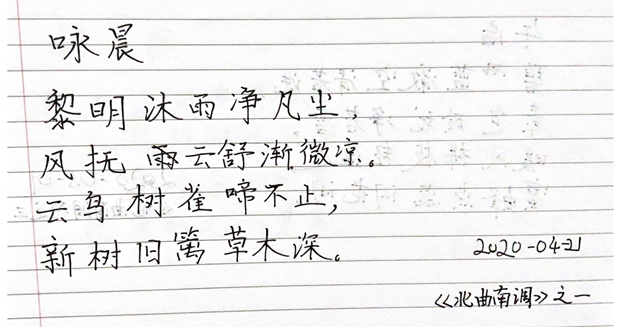 咏晨
黎明沐雨净凡尘，
风抚雨云舒渐微凉。
云鸟树雀啼不止，
新树旧篱草木深。
2020-04-21
《北曲南调》之一